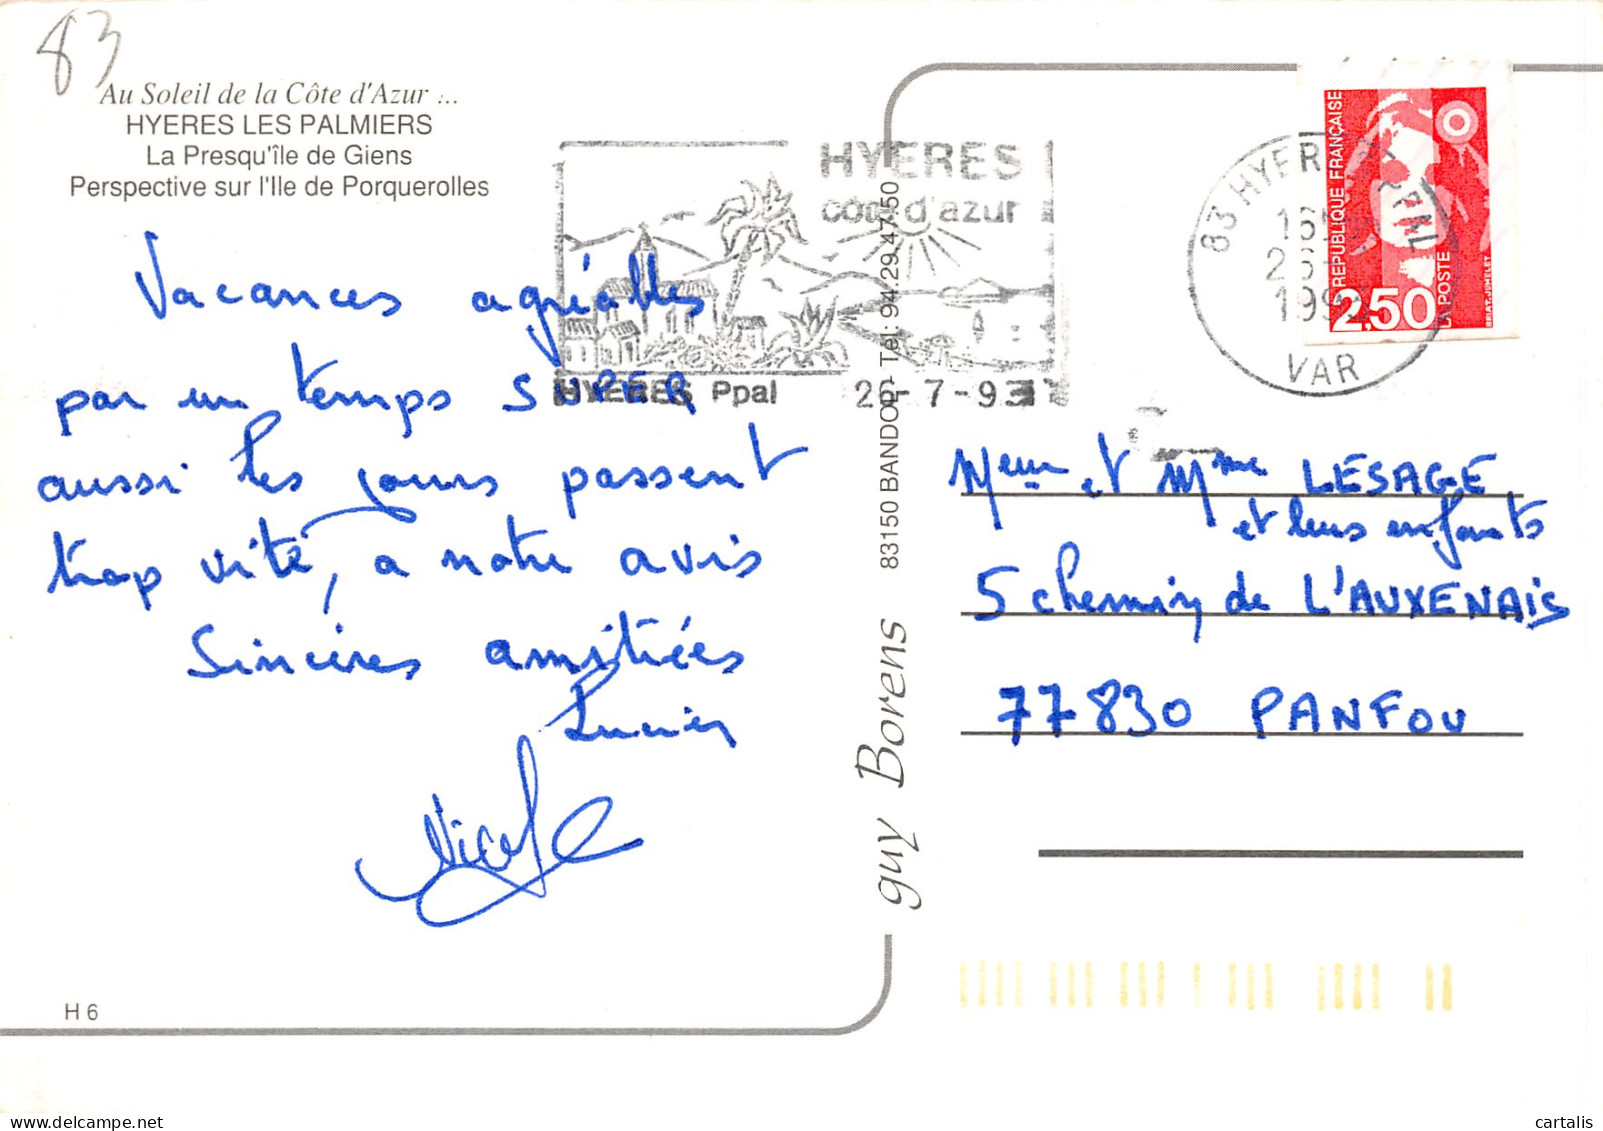 83
Au Soleil de la Côte d'Azur ...
HYERES LES PALMIERS
La Presqu'île de Giens
Perspective sur l'Ile de Porquerolles
Vacances agréables
par un temps SUPER
aussi les jours passent
trop vite, a notre avis
Sincères amitiées
Lucien
Nicole
H 6
HYERES
côte d'azur
HYERES Ppal
26-7-93
83150 BANDOL - Tel: 94.29.47.50
guy Borens
83 HYERES PPAL
16H
26-7
1993
VAR
REPUBLIQUE FRANÇAISE
2,50
LA POSTE
BRIAT-JUMELET
Meur et Mme LESAGE
et leurs enfants
5 chemin de L'AUXENAIS
77830 PANFOU
cartalis